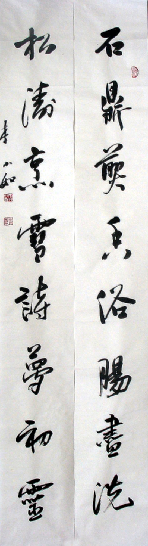 石鼎煎香俗腸盡洗
松濤烹雪詩夢初靈